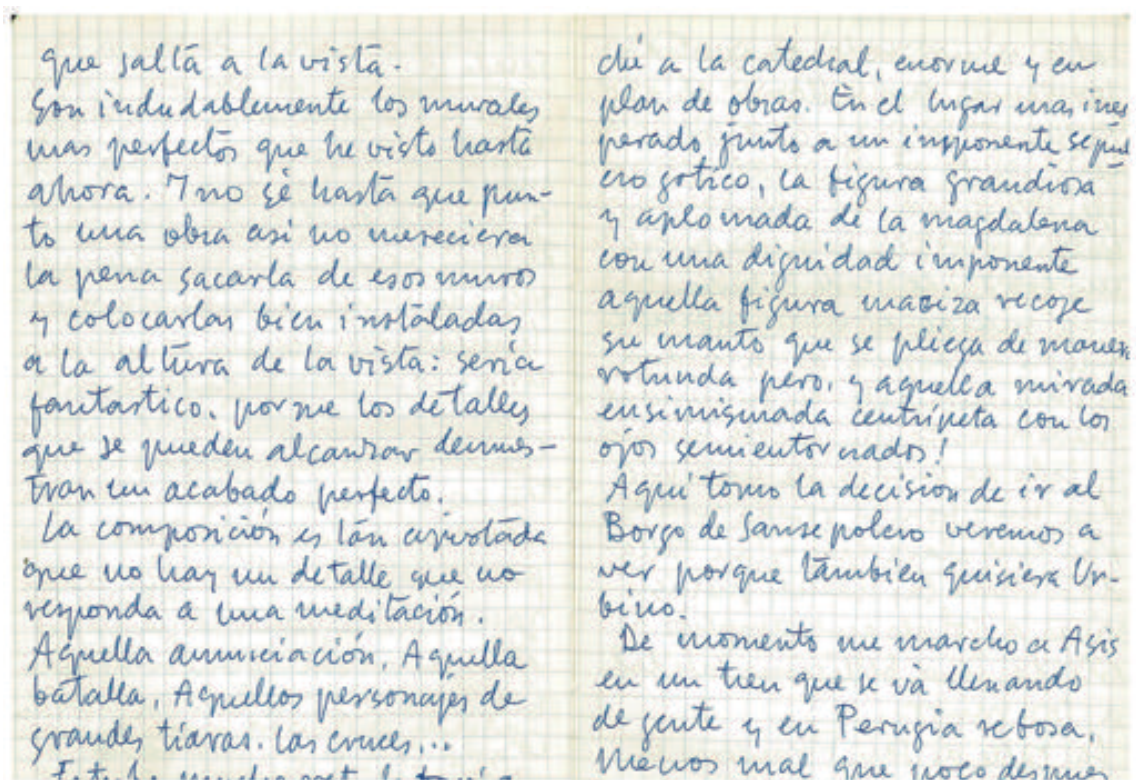 que salta a la vista.
Son indudablemente los murales
mas perfectos que he visto hasta
ahora. Y no sé hasta que pun-
to una obra asi no mereciera
la pena sacarla de esos muros
y colocarlas bien instaladas
a la altura de la vista: seria
fantastico, porque los detalles
que se pueden alcanzar demues-
tran un acabado perfecto.
La composición es tan ajustada
que no hay un detalle que no
responda a una meditación.
Aquella anunciación, Aquella
batalla, Aquellos personajes de
grandes tiaras. Las cruces...
ché a la catedral, enorme y en
plan de obras. En el lugar mas ines
perado junto a un imponente sepul
cro gotico, la figura grandiosa
y aplomada de la magdalena
con una dignidad imponente
aquella figura maciza recoje
su manto que se pliega de manera
rotunda pero, y aquella mirada
ensimismada centripeta con los
ojos semientornados!
Aqui tomo la decision de ir al
Borgo de Sansepolcro veremos a
ver porque tambien quisiera Ur-
bino.
De momento me marcho a Asis
en un tren que se và llenando
de gente y en Perugia rebosa,
Menos mal que poco despues